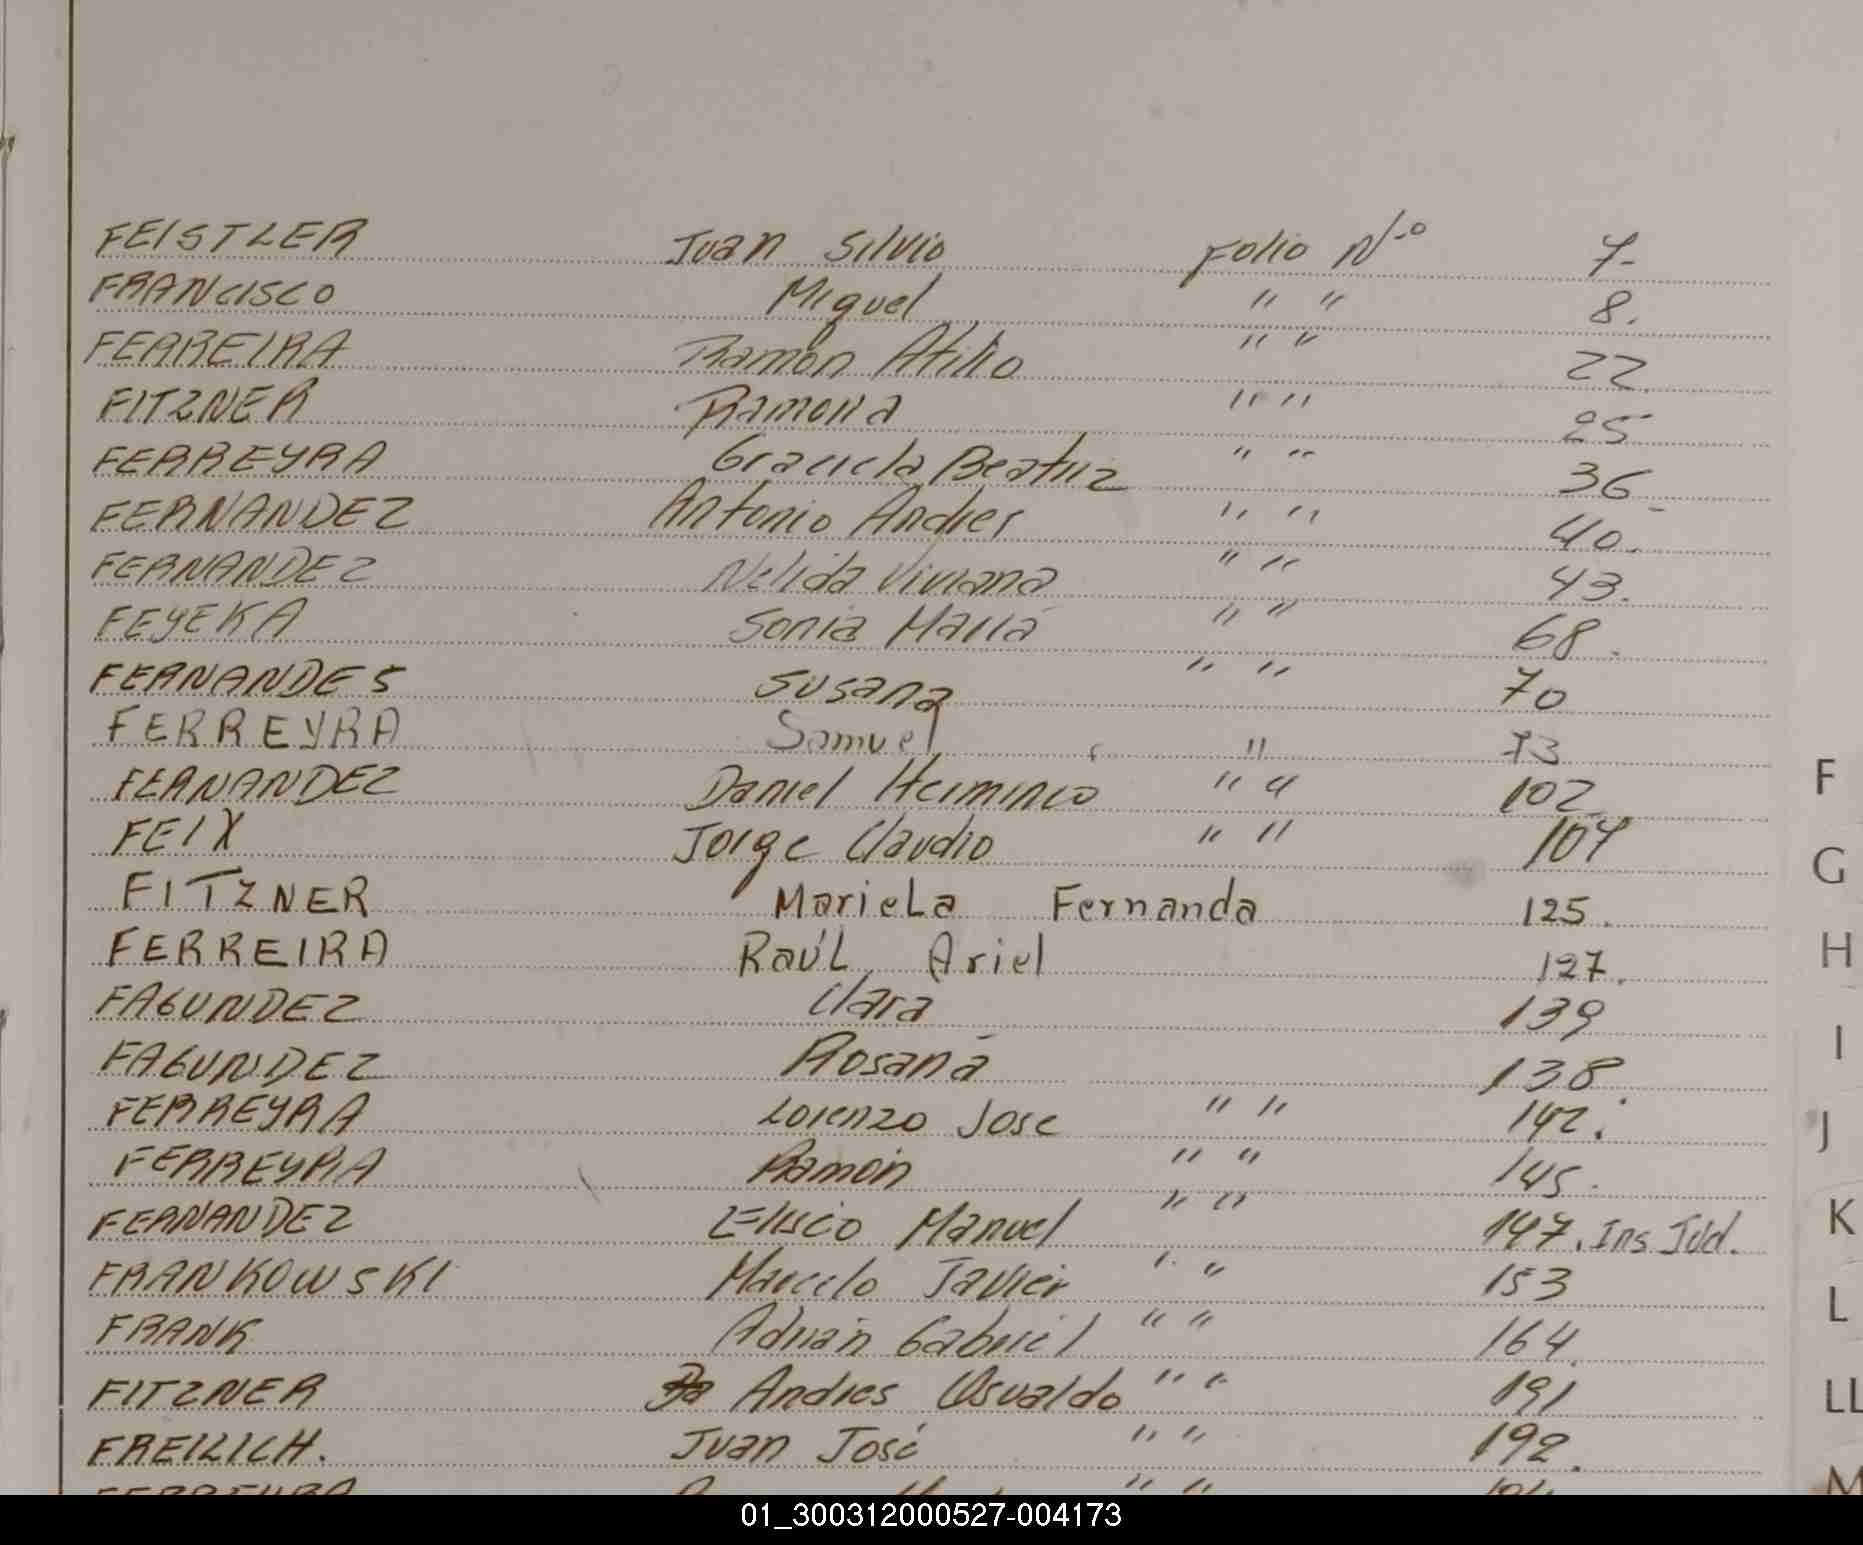 FEISTLER Juan Silvio Folio N-o 7-
FRANCISCO Miguel " " 8.
FERREIRA Ramón Atilio " " 22.
FITZNER Ramona " " 25
FERREYRA Graciela Beatriz " " 36
FERNANDEZ Antonio Andres " " 40.
FERNANDEZ Nelida Viviana " " 43.
FEYEKA Sonia María " " 68.
FERNANDES Susana " " 70
FERREYRA Samuel " 73
FERNANDEZ Daniel Herminio " " 102
FEIX Jorge Claudio " " 104
FITZNER Mariela Fernanda 125.
FERREIRA Raúl Ariel 127.
FAGUNDEZ Clara 139
FAGUNDEZ Rosana 138.
FERREYRA Lorenzo Jose " " 142.
FERREYRA Ramón " " 145.
FERNANDEZ Eliseo Manuel " " 147. Ins Jud.
FRANKOWSKI Marcelo Javier " " 153
FRANK Adrián Gabriel " " 164.
FITZNER Andres Osvaldo " " 191
FREILICH. Juan José " " 192.
FERREYRA
F
G
H
I
J
K
L
LL
M
01_300312000527-004173